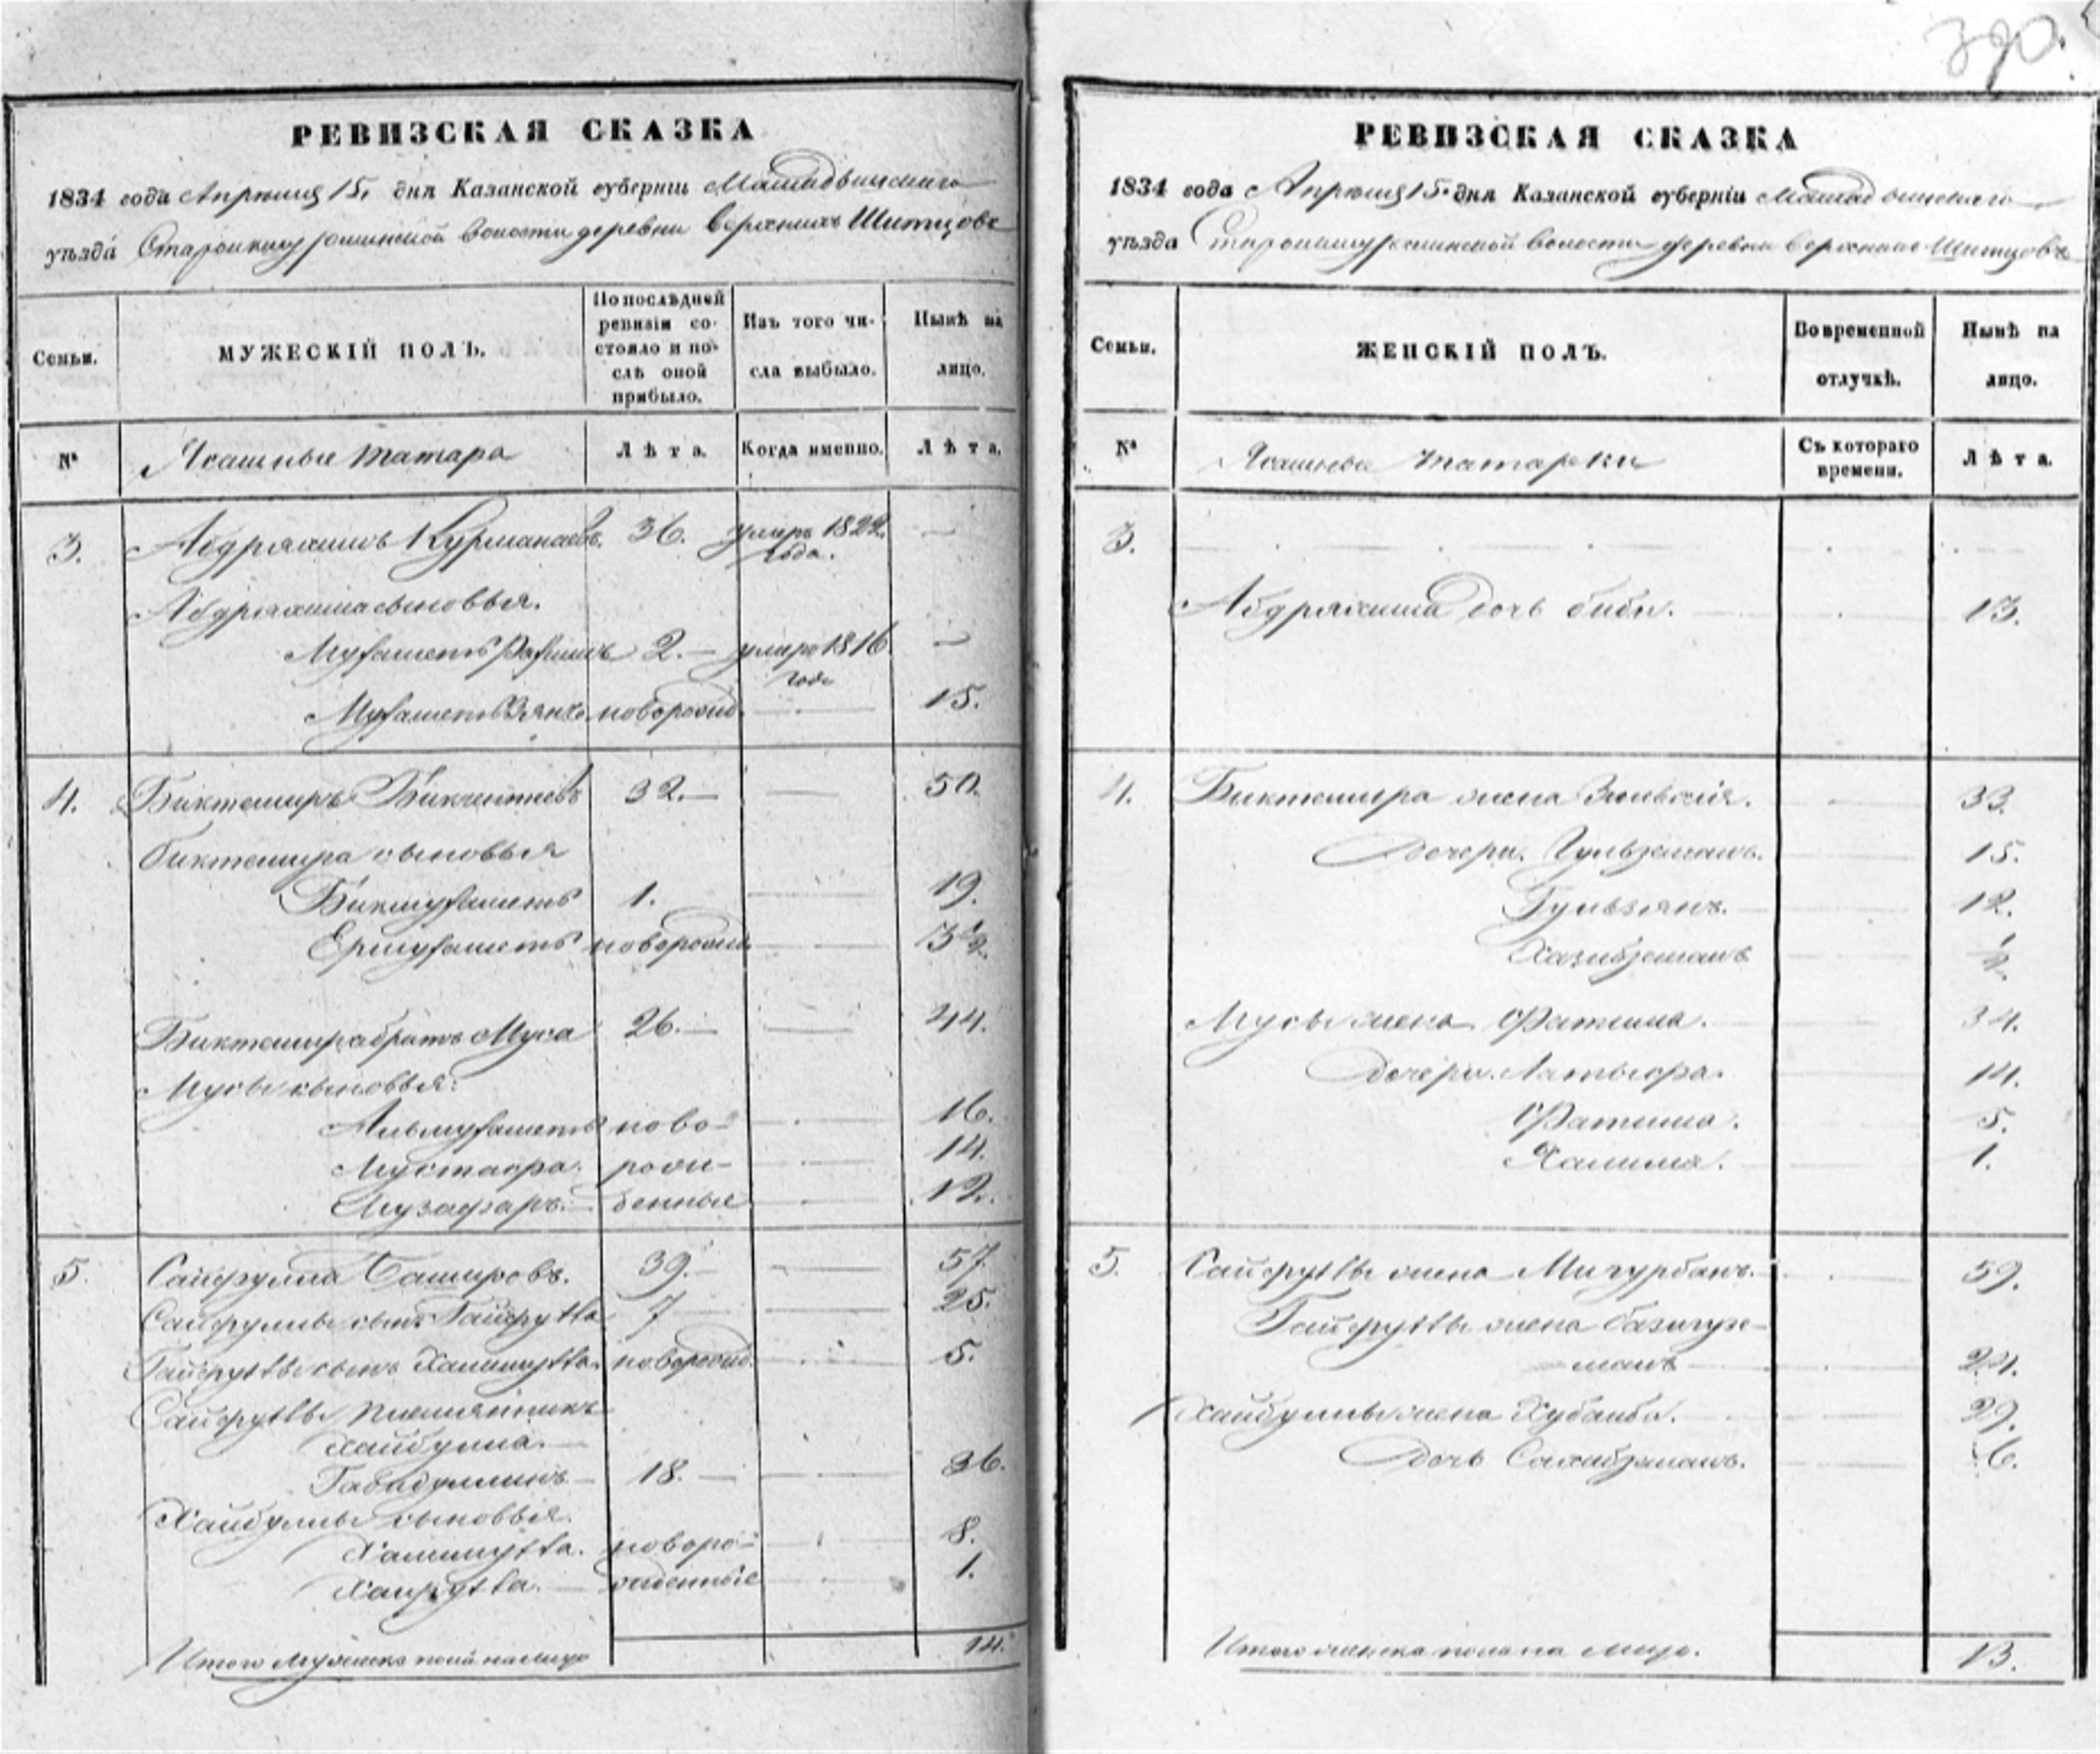 390.
РЕВИЗСКАЯ СКАЗКА
1834 года Апрѣля 15. дня Казанской губерніи Мамадышскаго
уѣзда Старои волости деревни Верхнихъ Шитцовъ
Семьи.
МУЖЕСКІЙ ПОЛЪ.
По послѣдней ревизіи состояло и послѣ оной прибыло.
Изъ того числа выбыло.
Нынѣ на лицо.
№
Ясашные татара
Лѣта.
Когда именно.
Лѣта.
3. Абдряхимъ Курманаевъ. 36. умеръ 1822. —
года.
Абдряхима сыновья.
Мухаметь Рахимъ 2.— умеръ 1816 —
года
Мухаметь новорожд. — 15.
4. Биктемиръ Бикчентаевъ 32.— — 50.
Биктемира сыновья
Бикмухаметь 1. — 19.
Ермухаметь новорожд. — 3½.
Биктемира братъ Муса 26.— — 44.
Мусы сыновья:
Альмухаметь ново- — 16.
Мустафа. рож- — 14.
Музафаръ.— денные — 12.
5. Сайфулла Башировъ. 39.— — 57.
Сайфуллы сынъ Гайфулла 7 — — 25.
Гайфуллы сынъ Халиулла. новорожд. — 5.
Сайфуллы племянникъ
Хайбулла.—
Габидуллинъ— 18.— — 36.
Хайбуллы сыновья.
Халиулла. новоро- — 8.
Хайрулла.— жденные — 1.
Итого мужеска пола налицо 14.
РЕВИЗСКАЯ СКАЗКА
1834 года Апрѣля 15. дня Казанской губерніи Мамадышскаго
уѣзда Старои волости деревни Верхнихъ Шитцовъ
Семьи.
ЖЕНСКІЙ ПОЛЪ.
Во временной отлучкѣ.
Нынѣ на лицо.
№
Ясашные татарки
Съ котораго времени.
Лѣта.
3. — — — — —
Абдряхима дочь Биби. — 13.
4. Биктемира жена — 33.
Дочери. Гульземанъ. — 15.
Гульзянъ. — 12.
Хазибземанъ ½.
Мусы жена Фатима. — 34.
Дочери. Латыфа. — 14.
Фатима. 5.
Халима. — 1.
5. Сайфуллы жена Мигурбанъ. — 59.
Гайфуллы жена Базигуже-
манъ — 24.
Хайбуллы жена Хубанба. — 29.
Дочь Сахибземанъ. — 6.
Итого женска пола на лицо. 13.